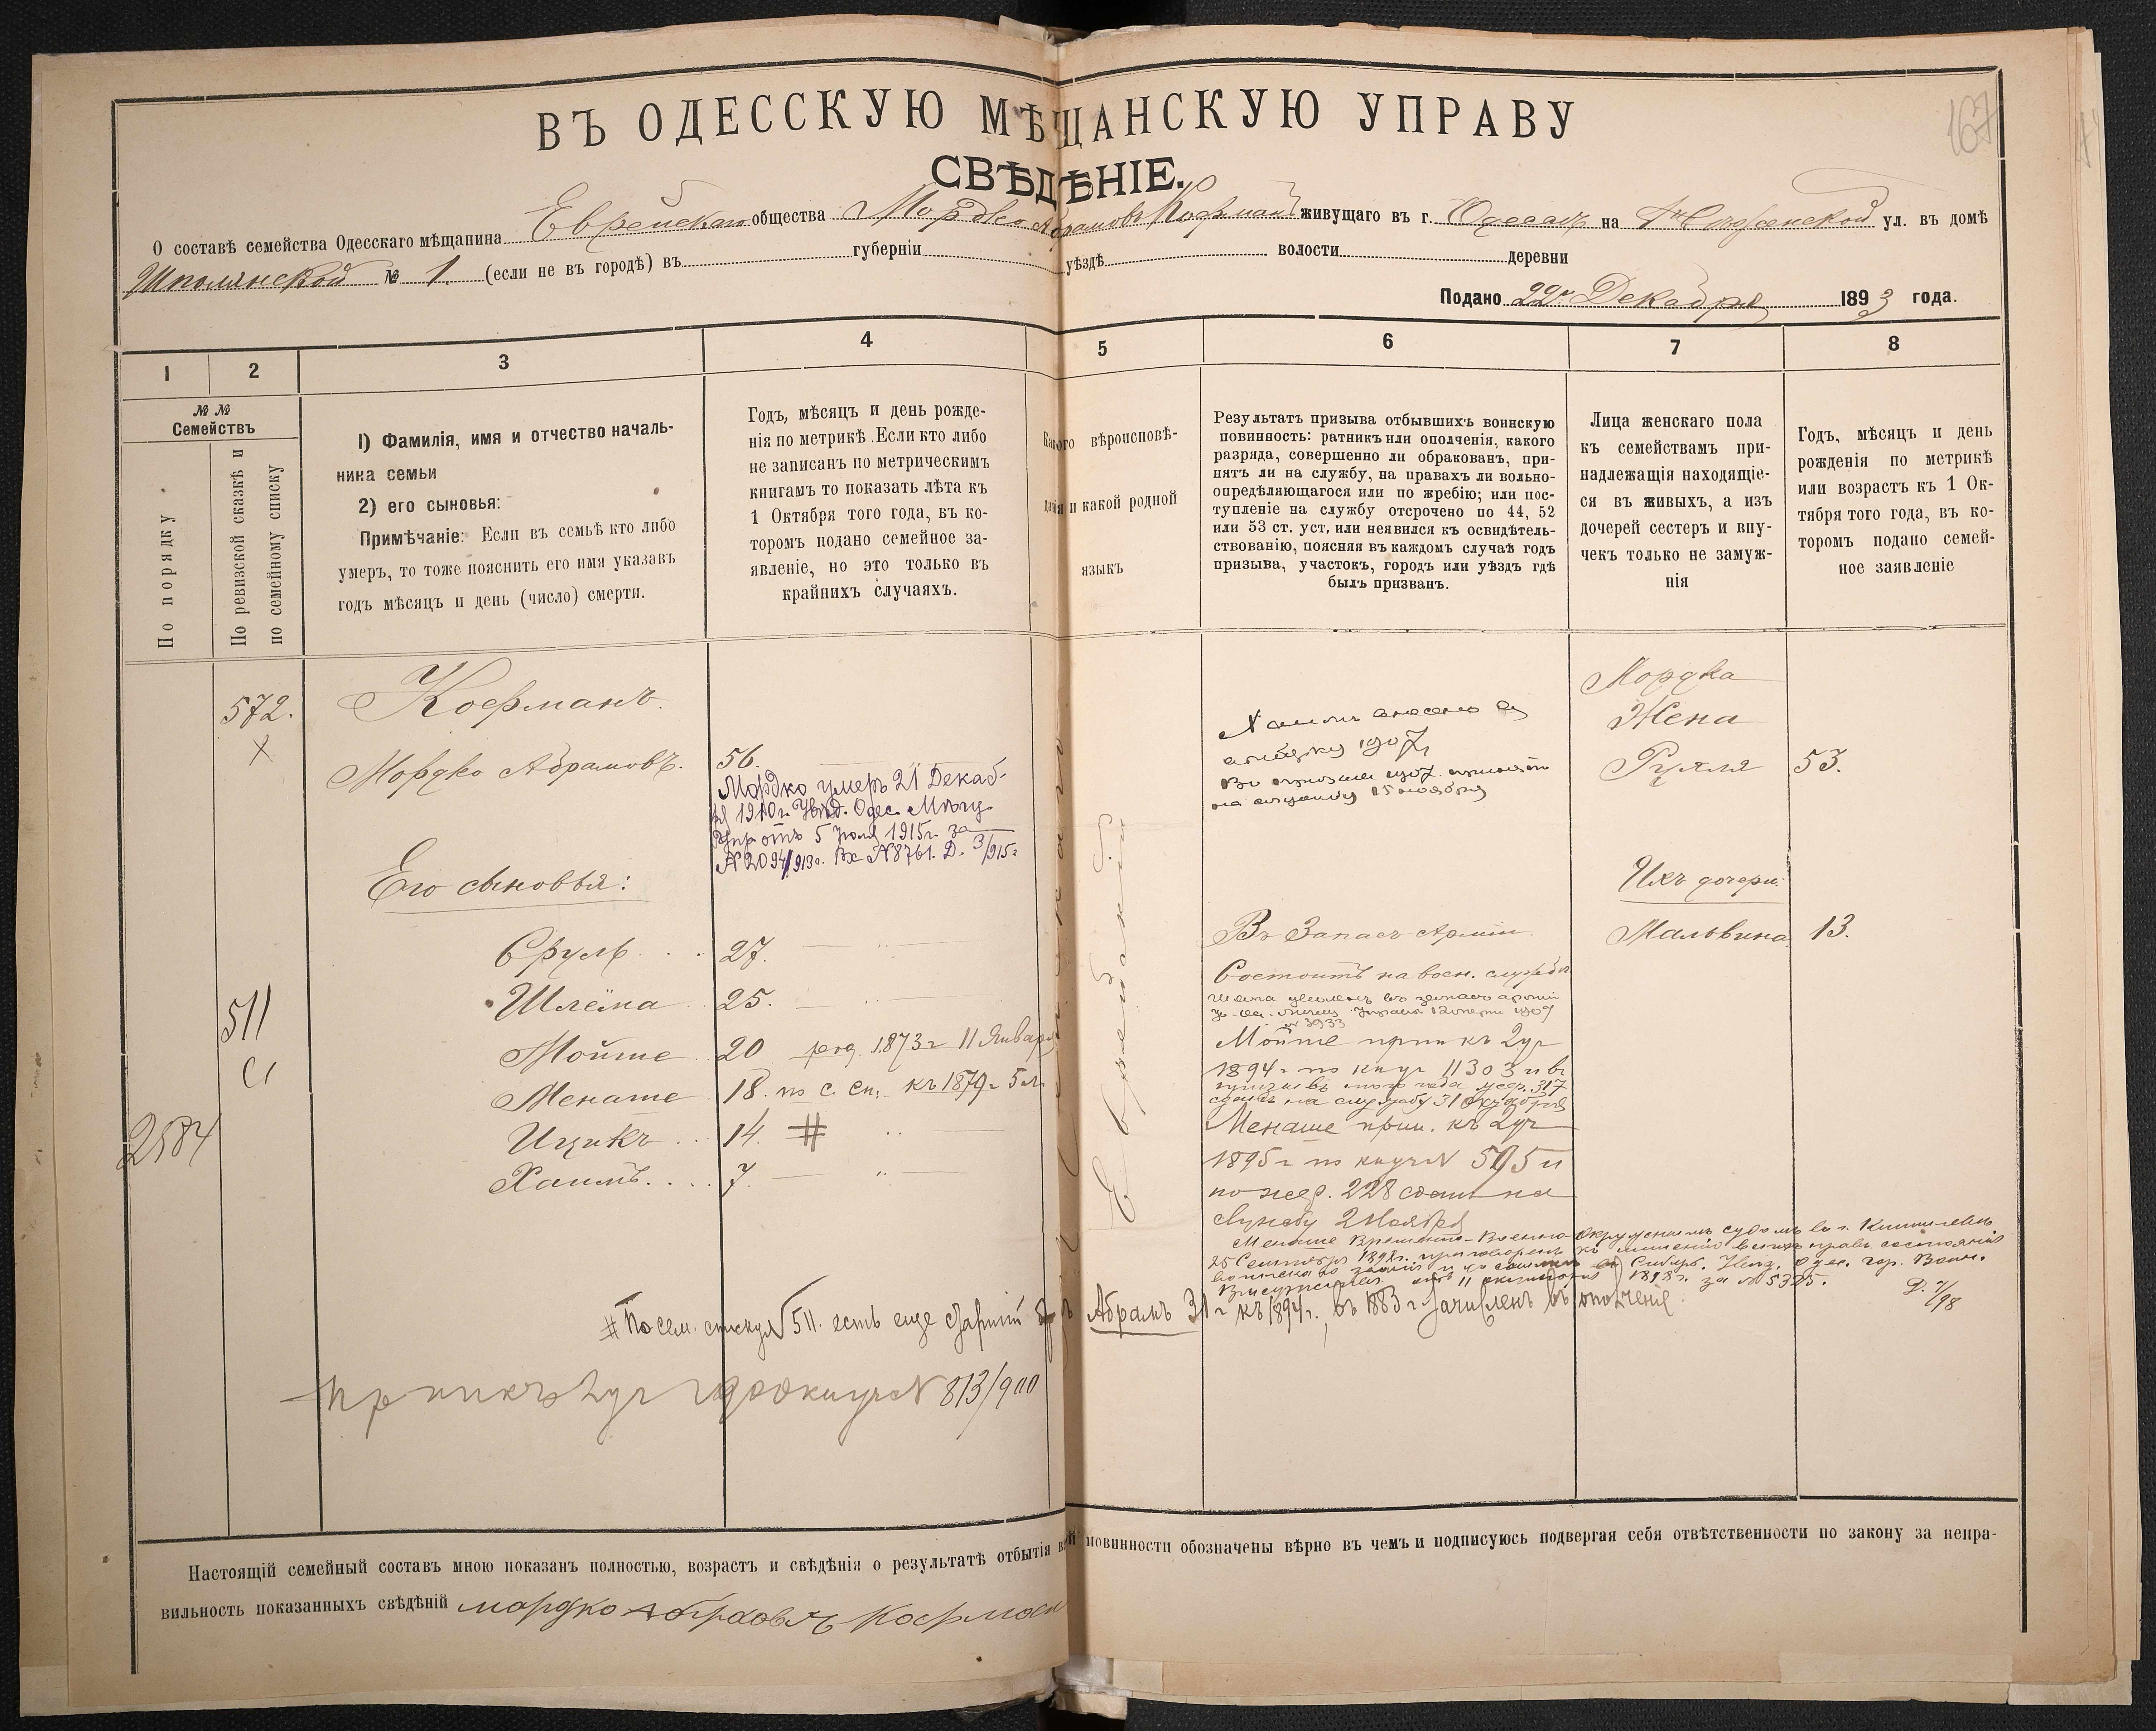 167
ВЪ ОДЕССКУЮ МѢЩАНСКУЮ УПРАВУ
СВѢДѢНІЕ.
О составѣ семейства Одесскаго мѣщанина Еврейскаго общества Мордко Абрамовъ Кофманъ живущаго въ г. Одессѣ на ул. въ домѣ
Шполянской № 1. (если не въ городѣ) въ губерніи уѣздѣ волости деревни
Подано 22го Декабря 1893 года.
1 2 3 4 5 6 7 8
№ № Семействъ
По порядку
По ревизской сказкѣ и
по семейному списку
1) Фамилія, имя и отчество началь-
ника семьи
2) его сыновья:
Примѣчаніе: Если въ семьѣ кто либо
умеръ, то тоже пояснить его имя указавъ
годъ мѣсяцъ и день (число) смерти.
Годъ, мѣсяцъ и день рожде-
нія по метрикѣ. Если кто либо
не записанъ по метрическимъ
книгамъ то показать лѣта къ
1 Октября того года, въ ко-
торомъ подано семейное за-
явленіе, но это только въ
крайнихъ случаяхъ.
Какого вѣроисповѣ-
данія и какой родной
языкъ
Результатъ призыва отбывшихъ воинскую
повинность: ратникъ или ополченія, какого
разряда, совершенно ли обракованъ, при-
нятъ ли на службу, на правахъ ли вольно-
опредѣляющагося или по жребію; или пос-
тупленіе на службу отсрочено по 44, 52
или 53 ст. уст. или неявился къ освидѣтель-
ствованію, поясняя въ каждомъ случаѣ годъ
призыва, участокъ, городъ или уѣздъ гдѣ
былъ призванъ.
Лица женскаго пола
къ семействамъ при-
надлежащія находящіе-
ся въ живыхъ, а изъ
дочерей сестеръ и вну-
чекъ только не замуж-
нія
Годъ, мѣсяцъ и день
рожденія по метрикѣ
или возрастъ къ 1 Ок-
тября того года, въ ко-
торомъ подано семей-
ное заявленіе
572.
X
Кофманъ.
Мордко Абрамовъ. 56.
Мордко умеръ 21 Декаб-
ря 1910 г. Увѣд. Одес. Мѣщ.
Упр отъ 5 Іюля 1915 г. за
N 2094/913 г. Вх N 8761. Д. 3/915 г
Его сыновья:
Сруль 27.
Шлёма 25.
Мойше 20 род. 1873 г 11 Января
Менаше 18. по с. сп. къ 1879 г 5 л.
Ицикъ 14. #
Хаимъ 7.
511
2584
Еврейскій
Хаимъ внесенъ въ
1907 г
Въ призывъ 1907 г. принятъ
на службу 15 ноября
Въ Запасѣ Арміи.
Состоитъ на воен. службѣ
N 3933
Мойше прип къ 2 уч
1894 г по книг 11303 и въ
призывъ того года жер. 317
сданъ на службу 31 октября
Менаше прип. къ 2 уч
1895 г по книг N 595 и
по жер. 228 сданъ на
службу 2 Ноября
Менаше Временно-Военно-Окружнымъ судомъ въ г. Кишиневѣ
25 Сентября 1898 г. приговоренъ къ лишенію всѣхъ правъ состоянія
Сибирь. Увѣд. Одес. гор. Воин.
Присутствія отъ 11 октября 1898 г. за № 5325. Д. 7/98
Мордка
Жена
Рухля 53.
Ихъ дочери:
Мальвина 13.
# По сем. списку N 511. есть еще старшій братъ Абрамъ 31 г къ 1894 г., въ 1883 г зачисленъ въ ополченіе.
Приписъ 2 уч 1900 книг N 813/900
Настоящій семейный составъ мною показанъ полностью, возрастъ и свѣдѣнія о результатѣ отбытія повинности обозначены вѣрно въ чемъ и подписуюсь подвергая себя отвѣтственности по закону за непра-
вильность показанныхъ свѣдѣній мордко Абрамовъ Кофман